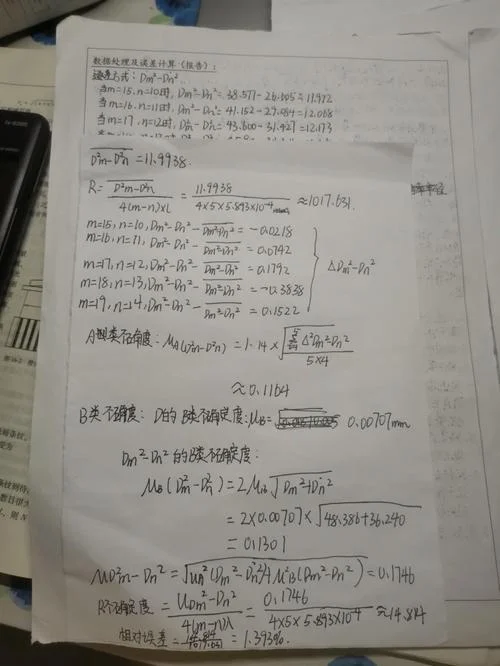 数据处理及误差计算（报告）：
逐差方式：Dm²-Dn²
当m=15,n=10时, Dm²-Dn²=38.577-26.605=11.972
当m=16,n=11时, Dm²-Dn²=41.152-29.084=12.068
当m=17,n=12时, Dm²-Dn²=43.600-31.427=12.173
D²m-D²n=11.9938
R=D²m-D²n/4(m-n)×λ=11.9938/4×5×5.893×10⁻⁴≈1017.631
m=15,n=10,Dm²-Dn²-Dm²-Dn²=-0.0218
m=16,n=11,Dm²-Dn²-Dm²-Dn²=0.0742
m=17,n=12,Dm²-Dn²-Dm²-Dn²=0.1792
m=18,n=13,Dm²-Dn²-Dm²-Dn²=-0.3838
m=19,n=14,Dm²-Dn²-Dm²-Dn²=0.1522
ΔDm²-Dn²
A类不确度：μA(D²m-D²n)=1.14×√Δ²Dm²Dn²/5×4
≈0.1164
B类不确度：D的B类不确定度：μB= 0.00707mm
Dm²-Dn²的B类不确定度：
μB(Dm²-Dn²)=2μB√Dm²+Dn²
=2×0.00707×√48.386+36.240
=0.1301
μD²m-Dn²=√μA²(Dm²-Dn²)+μ²B(Dm²-Dn²)=0.1746
R不确定度=UDm²-Dn²/4(m-n)λ=0.1746/4×5×5.893×10⁻⁴≈14.814
相对误差= =1.393%